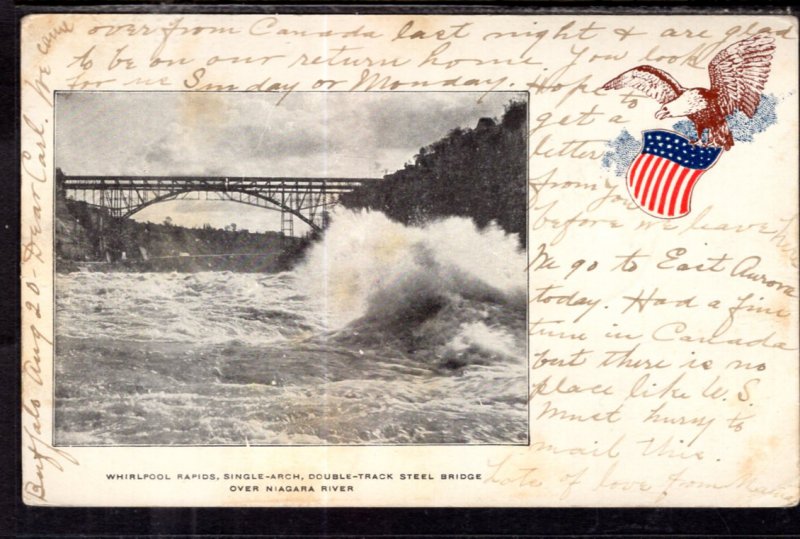 Buffalo Aug 20 - Dear Carl. We came
over from Canada last night & are glad
to be on our return home. You look
for us Sunday or Monday. Hope
to
get a
letter
from you
before we leave here
We go to East Aurora
today. Had a fine
time in Canada
but there is no
place like U.S.
Must hurry to
mail this.
Lots of love from
WHIRLPOOL RAPIDS, SINGLE-ARCH, DOUBLE-TRACK STEEL BRIDGE
OVER NIAGARA RIVER